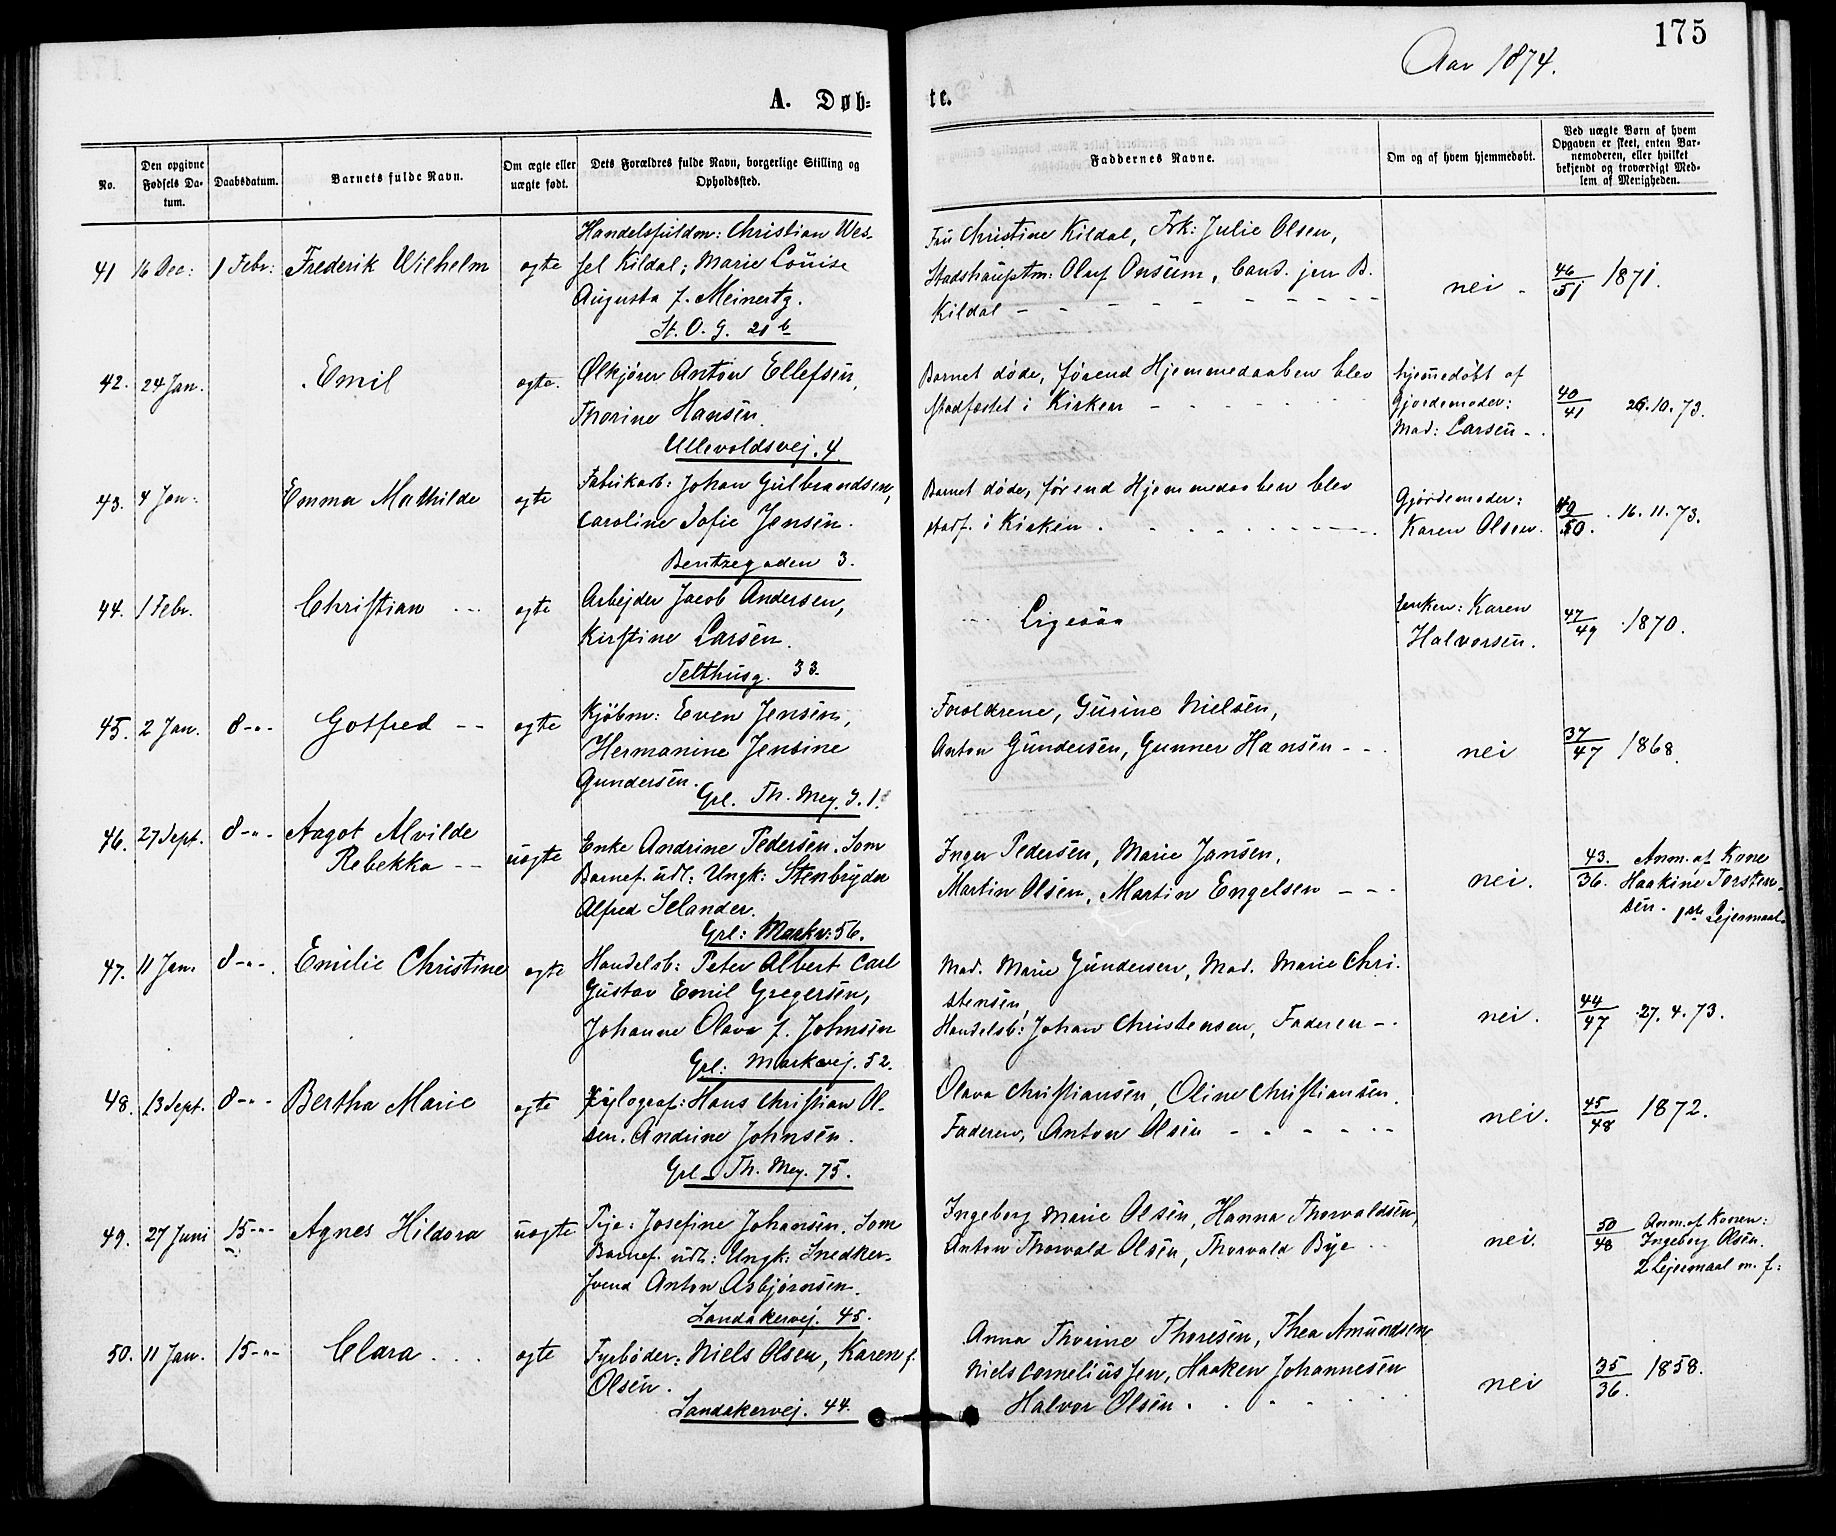 175
Aar 1874.
A. Døb-
te.
No.
Den opgivne Fødsels Da-tum.
Daabsdatum.
Barnets fulde Navn.
Om ægte eller uægte født.
Dets Forældres fulde Navn, borgerlige Stilling og Opholdssted.
Faddernes Navne.
Om og af hvem hjemmedøbt.
Ved uægte Børn af hvem Opgaven er skeet, enten Bar-nemoderen, eller hvilket bekjendt og troværdigt Med-lem af Menigheden.
41 16 Dec: 1 Febr: Frederik Wilhelm ægte
Handelsfuldm: Christian Wes-
sel Kildal; Marie Louise
Augusta f. Meinertz.
St. O. G. 21 b
Fru Christine Kildal, Frk: Julie Olsen,
Stadshauptm: Oluf Onsum, Cand. jur B.
Kildal - - - - - - - -
nei - 46/51 1871.
42. 24 Jan. Emil ægte.
Ølkjører Anton Ellefsen,
Thorine Hansen.
Ullevoldsvej. 4.
Barnet døde, førend Hjemmedaaben blev
stadfæstet i Kirken - - - -
hjemmedøbt af
Gjordemoder:
Mad: Larsen -
40/41 26.10.73.
43. 4 Jan: Emma Mathilde ægte
Fabrikarb: Johan Gulbrandsen,
Caroline Sofie Jensen.
Bentzegaden 3.
Barnet døde, førend Hjemmedaaben blev
stadf. i Kirken . - - - - -
Gjordemoder:
Karen Olsen.
49/50. 16.11.73.
44. 1 Febr. Christian - - ægte
Arbejder Jacob Andersen,
Kirstine Larsen.
Telthusg. 33.
Ligesaa
Enken: Karen
Halvorsen.
47/49 1870.
45. 2 Jan. 8-"- Gotfred - - ægte
Kjøbm: Even Jensen,
Hermanine Jensine
Gundersen.
Grl. Th. Mey. G. 1.
Forældrene, Gurine Nielsen,
Anton Gundersen, Gunner Hansen - -
nei 37/47 1868.
46. 27 Sept. 8-"- Aagot Alvilde
Rebekka - - uægte
Enke Andrine Pedersen. Som
Barnef. udl: Ungk: Stenbryder
Alfred Selander.
Grl: Markv: 56.
Inger Pedersen, Marie Jansen,
Martin Olsen, Martin Engelsen - - -
nei. 43./36. Anm. af Kone
Haakine Torsten-
sen. 1ste Lejermaal.
47. 11 Jan. 8-"-. Emilie Christine ægte
Handelsb: Peter Albert Carl
Gustav Emil Gregersen,
Johanne Olava f. Johnsen
Grl: Markvej. 52.
Mad. Marie Gundersen, Mad. Marie Chri-
stensen,
Handelsb: Johan Christensen, Faderen -.
nei. 44/47 27.4.73.
48. 13 Sept. 8-"- Bertha Marie ægte
Xylograf: Hans Christian Ol-
sen. Andrine Johnsen.
Grl. Th. Mey. 75.
Olava Christiansen, Oline Christiansen.
Faderen, Anton Olsen - - - - - -
nei. 45/48 1872.
49. 27 Juni 15-"- Agnes Hildora uægte
Pige: Josefine Johansen. Som
Barnef. udl: Ungk: Snedker-
svend Anton Asbjørnsen.
Sandakervej. 45.
Ingeborg Marie Olsen, Hanna Thorvaldsen,
Anton Thorvald Olsen, Thorvald Bye - -
nei. 50/48 Anm. af Konen:
Ingeborg Olsen.
2 Lejermaal m. f:
50. 11 Jan. 15-"- Clara . . . ægte
Fyrbøder: Niels Olsen, Karen f.
Olsen.
Sandakervej. 44.
Anna Thorine Thoresen, Thea Amundsen
Niels Cornelius Jen, Haaken Johannesen
Halvor Olsen . . . .
nei 35/36. 1858.